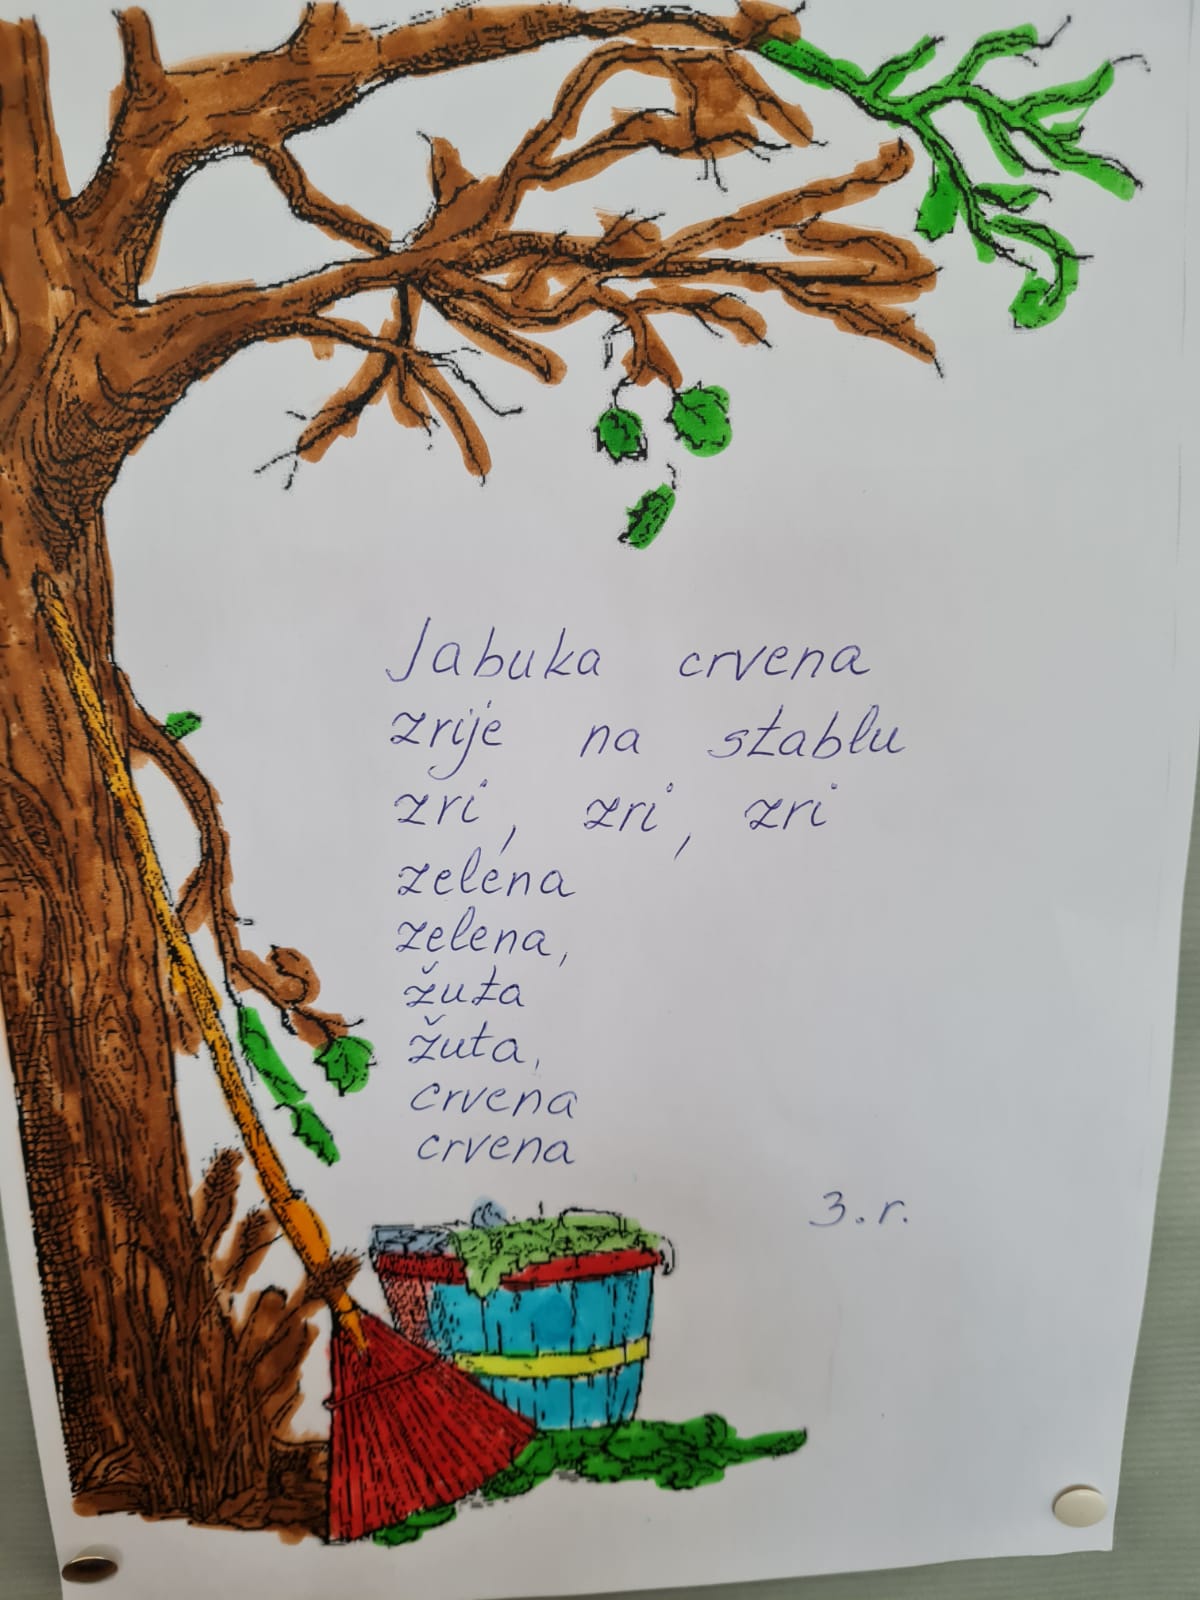 Jabuka crvena
zrije na stablu
zri, zri, zri
zelena
zelena,
žuta
žuta,
crvena
crvena
3.r.